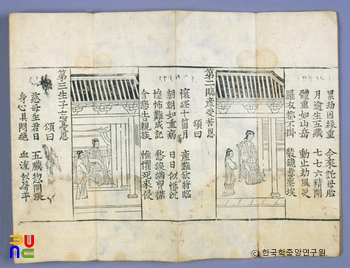 累劫因緣重 今來託母胎
月逾生五臟 七七六精開
體重如山岳 動止劫風災
羅衣都不掛 裝鏡惹塵埃
第二臨產受苦恩
頌曰
懷經十箇月 產難欲將臨
朝朝如重病 日日似惛沉
惶怖難成記 愁淚滿胸襟
含悲告親族 惟懼死來侵
第三生子忘憂恩
頌曰
慈母生君日 五臟惣開張
身心具悶絕 血流似屠羊
©한국학중앙연구원